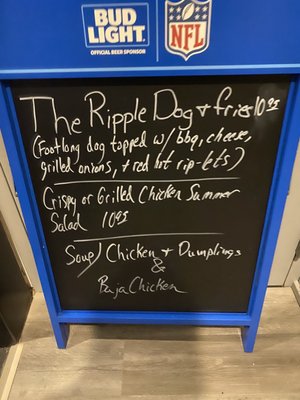 BUD LIGHT
OFFICIAL BEER SPONSOR
NFL
The Ripple Dog + fries 10.95
(Footlong dog topped w/ bbq, cheese,
grilled onions, + red hot rip-lets)
Crispy or Grilled Chicken Summer
Salad 10.95
Soup/ Chicken + Dumplings
&
Baja Chicken